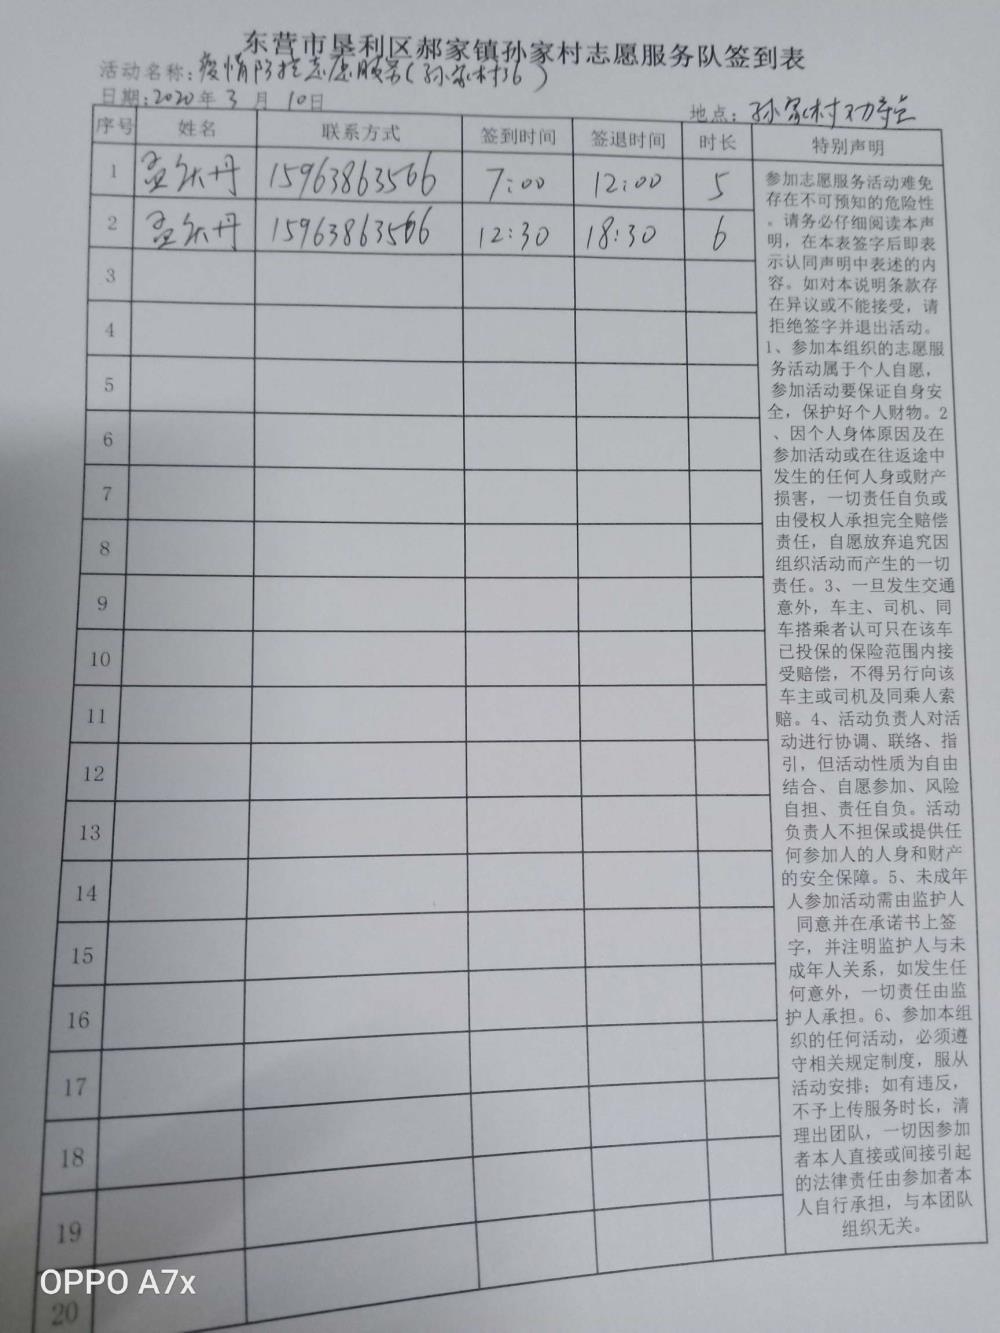 东营市垦利区郝家镇孙家村志愿服务队签到表
活动名称:疫情防控志愿服务(孙家村36)
日期:2020年3月10日
地点:孙家村
序号 姓名 联系方式 签到时间 签退时间 时长 特别声明
1 孟 丹 15963863566 7:00 12:00 5
2 孟 丹 15963863566 12:30 18:30 6
3
4
5
6
7
8
9
10
11
12
13
14
15
16
17
18
19
20
参加志愿服务活动难免
存在不可预知的危险性
。请务必仔细阅读本声
明,在本表签字后即表
示认同声明中表述的内
容。如对本说明条款存
在异议或不能接受,请
拒绝签字并退出活动。
1、参加本组织的志愿服
务活动属于个人自愿,
参加活动要保证自身安
全,保护好个人财物。2
、因个人身体原因及在
参加活动或在往返途中
发生的任何人身或财产
损害,一切责任自负或
由侵权人承担完全赔偿
责任,自愿放弃追究因
组织活动而产生的一切
责任。3、一旦发生交通
意外,车主、司机、同
车搭乘者认可只在该车
已投保的保险范围内接
受赔偿,不得另行向该
车主或司机及同乘人索
赔。4、活动负责人对活
动进行协调、联络、指
引,但活动性质为自由
结合、自愿参加、风险
自担、责任自负。活动
负责人不担保或提供任
何参加人的人身和财产
的安全保障。5、未成年
人参加活动需由监护人
同意并在承诺书上签
字,并注明监护人与未
成年人关系,如发生任
何意外,一切责任由监
护人承担。6、参加本组
织的任何活动,必须遵
守相关规定制度,服从
活动安排;如有违反,
不予上传服务时长,清
理出团队,一切因参加
者本人直接或间接引起
的法律责任由参加者本
人自行承担,与本团队
组织无关。
OPPO A7x